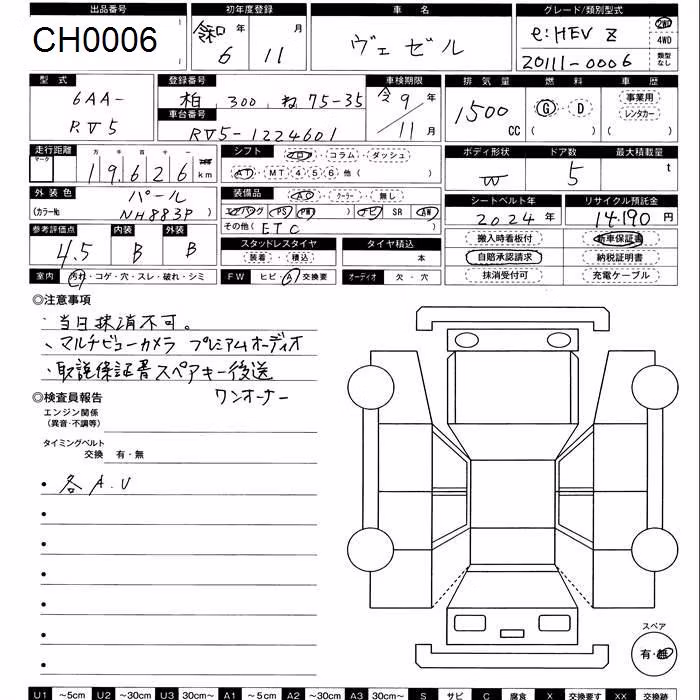 出品番号 初年度登録 車名 グレード/類別型式
CH0006 令和6年11月 ヴェゼル e:HEV Z 2WD
4WD
20111-0006 類型なし
型式 登録番号 車検期限 排気量 燃料 車歴
6AA- 柏 300 ね 75-35 令9年 1500CC G・D 事業用
RV5 車台番号 RV5-1224601 11月 レンタカー
走行距離 シフト ボディ形状 ドア数 最大積載量
マーク 十万千百十一 コラム・ダッシュ
19,626km AT・MT(4 5 6 他( ) W 5 t
外装色 パール 装備品 AC・クーラー・無し シートベルト年 リサイクル預託金
(カラーNo NH883P) エアバッグ PS PW ナビ SR AW 2024年 14,190円
参考評価点 内装 外装 その他(ETC)
4.5 B B スタッドレスタイヤ タイヤ積込 搬入時看板付 新車保証書
装着・積込 本 自賠承認請求 納税証明書
室内 汚れ・コゲ・穴・スレ・破れ・シミ FW ヒビ・A 交換要 オーディオ 欠・穴 抹消受付可 充電ケーブル
◎注意事項
・当日抹消不可。
・マルチビューカメラ プレミアムオーディオ
・取説保証書スペアキー後送
ワンオーナー
◎検査員報告
エンジン関係
(異音・不調等)
タイミングベルト
交換 有・無
・各A.U
スペア
有・無
U1 ~5cm U2 ~30cm U3 30cm~ A1 ~5cm A2 ~30cm A3 30cm~ S サビ C 腐食 X 交換要す XX 交換跡